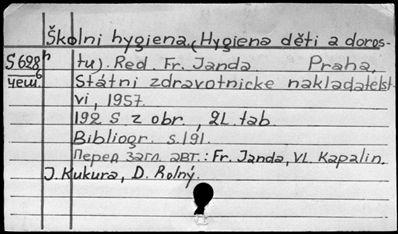 Školni hygiena. (Hygiena děti a doros-
S 628 h tu). Red. Fr. Janda Praha,
чеш. 6 Státni zdravotnicke nakladatelst-
vi, 1957.
192 S z obr., 2L tab
Bibliogr. s.191.
Перед загл. авт.: Fr. Janda, VL. Kapalin,
J. Kukura, D. Rolný.